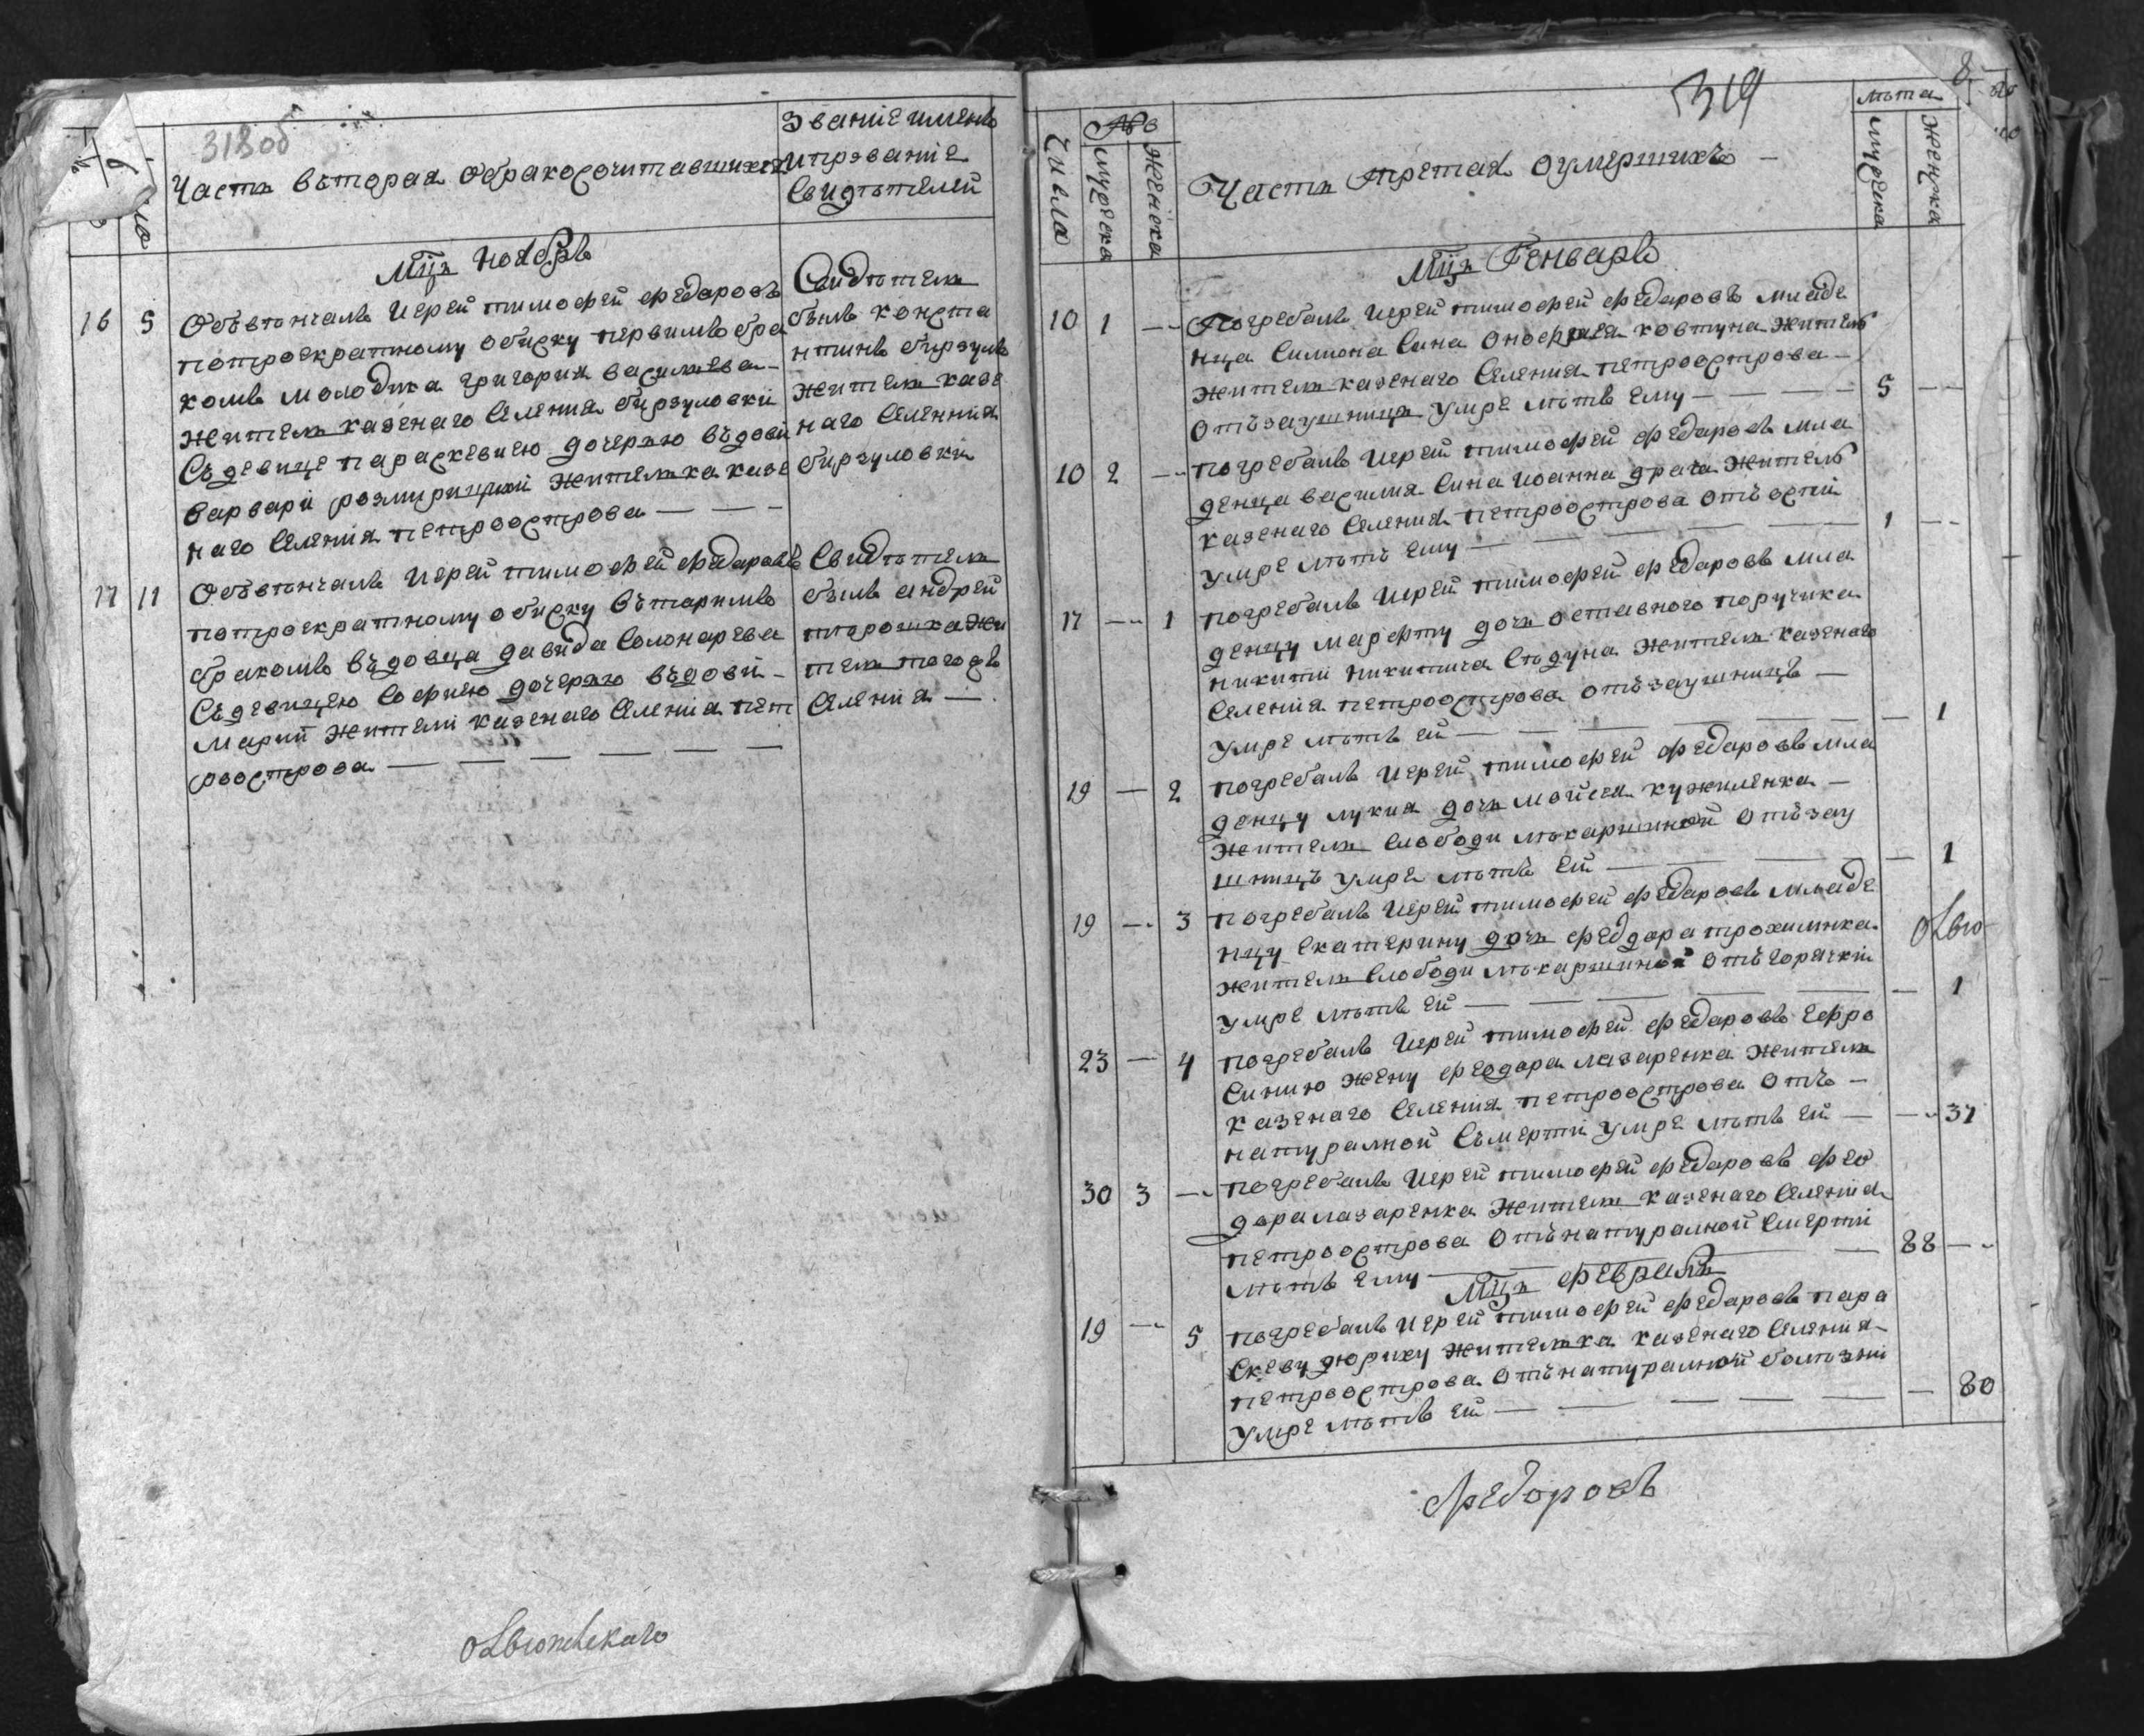 318об
Часть вьторая обракосочитавшихся
Званїе именъ
ипрозванїе
Свидѣтелей
Мцъ ноябрь
16 5 Обьвѣнчалъ Иерей тимофей федаровъ
потроекратному обиску первимъ бра
комъ молодика григория василиева
жителя казенаго Селения бирзуловкї
Съдевице параскевиею дочерью въдови
варварї розмирицкїй жителька казе
наго Селения петроострова
Свидѣтели
билъ конста
нтинъ бирзулъ
жителъ казе
наго Селенния
бирзуловкї
17 11 Обьвѣнчалъ Иерей тимофей федаровъ
потроекратному обиску вьтаримъ
бракомъ въдовца давида Солонарева
Съдевицею Софиею дочерью въдови
марий жителї казенаго Селения пет
роострова
Свидѣтели
билъ андрей
тюрошка жи
тель тогодъ
Селения
оLвютскаго
319
8
Числа
№в
мужеска
женска
Часть третая оумершихъ
лѣта
мужеска
женска
Мцъ Генварь
10 1 Погребалъ Иерей тимофей федаровъ младе
нца Симиона Сина Онофрия ковтуна жителъ
жителя казенаго Селения петроострова
отъзаушница умре лѣтъ ему 5
10 2 погребалъ Иерей тимофей федаровъ мла
денца василия Сина Иоанна драча жителъ
казенаго Селения петроострова отъоспї
умре лѣтъ ему 1
17 1 погребалъ Иерей тимофей федаровъ мла
денцу марфту дочь оставного поручика
никитї никитича Сѣдуна жителя казенаго
Селения петроострова отъзаушницъ
умре лѣтъ ей 1
19 2 погребалъ Иерей тимофей федаровъ мла
денцу лукия дочь мойсея кужиленка
жителя Слободи мъкаришиной отъзау
шницъ умре лѣтъ ей 1
19 3 погребалъ Иерей тимофей федаровъ младе
нцу екатерину дочь феддора трохимнка
жителя Слободи мъкаришиной отъгорячкїй
умре лѣтъ ей 1
оLвю
23 4 погребалъ Иерей тимофей федаровъ Ефро
Синию жену феодора лазаренка жителя
казенаго Селения петроострова отъ
натуралной Съмертї умре лѣтъ ей 37
30 3 погребалъ Иерей тимофей федаровъ фео
дора лазаренка жителя казенаго Селения
петроострова отънатуралной Смертї
лѣтъ ему 88
Мцъ февраль
19 5 погребалъ Иерей тимофей федаровъ пара
Скеву дюрику жителька казенаго Селения
петроострова отънатуралной болѣзнї
умре лѣтъ ей 80
Федоровъ